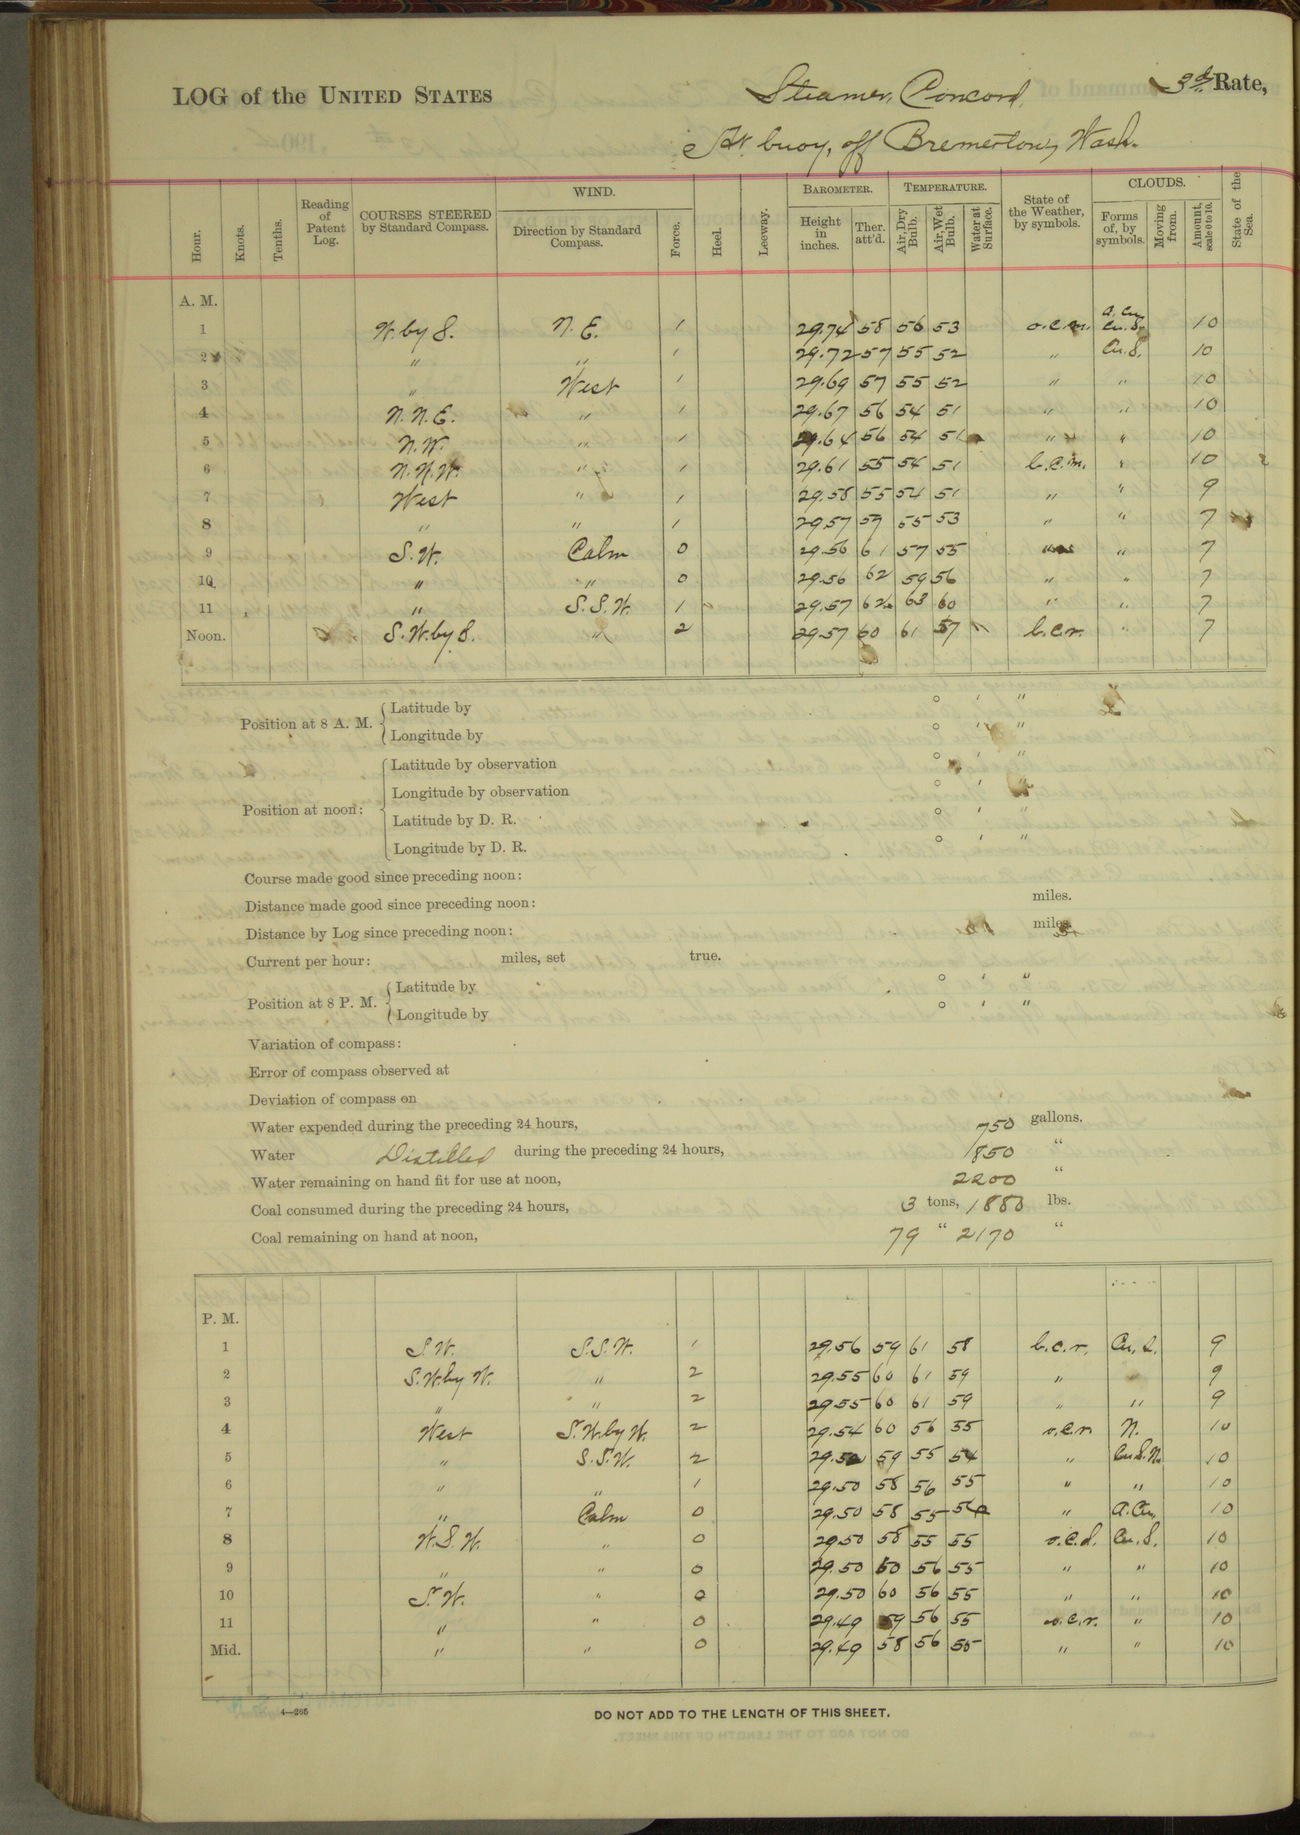 LOG of the UNITED STATES Steamer, Concord, 3d Rate,
At buoy, off Bremerton, Wash.
Hour. Knots. Tenths. Reading of Patent Log. COURSES STEERED by Standard Compass. WIND. Direction by Standard Compass. Force. Heel. Leeway. BAROMETER. Height in inches. Ther. att'd. TEMPERATURE. Air, Dry Bulb. Air, Wet Bulb. Water at Surface. State of the Weather, by symbols. CLOUDS. Forms of, by symbols. Moving from. Amount, scale 0 to 10. State of the Sea.
A. M.
1 W. by S. N. E. 1 29.74 58 56 53 o.c.m. a. Cu. Cu. S. 10
2 " " 1 29.72 57 55 52 " Cu. S. 10
3 " West 1 29.69 57 55 52 " " 10
4 N. N. E. " 1 29.67 56 54 51 " " 10
5 N. W. " 1 29.64 56 54 51 " " 10
6 N. N. W. " 1 29.61 55 54 51 b.c.m. " 10
7 West " 1 29.58 55 54 51 " " 9
8 " " 1 29.57 59 55 53 " " 7
9 S. W. Calm 0 29.56 61 57 55 " " 7
10 " " 0 29.56 62 59 56 " " 7
11 " S. S. W. 1 29.57 62 63 60 " " 7
Noon. S. W. by S. " 2 29.57 60 61 57 b.c.r. " 7
Position at 8 A. M. Latitude by ° ' "
Longitude by ° ' "
Position at noon: Latitude by observation ° ' "
Longitude by observation ° ' "
Latitude by D. R. ° ' "
Longitude by D. R. ° ' "
Course made good since preceding noon:
Distance made good since preceding noon: miles.
Distance by Log since preceding noon: miles.
Current per hour: miles, set true.
Position at 8 P. M. Latitude by ° ' "
Longitude by ° ' "
Variation of compass:
Error of compass observed at
Deviation of compass on
Water expended during the preceding 24 hours, 750 gallons.
Water Distilled during the preceding 24 hours, 1850 "
Water remaining on hand fit for use at noon, 2200 "
Coal consumed during the preceding 24 hours, 3 tons, 1880 lbs.
Coal remaining on hand at noon, 79 " 2170 "
P. M.
1 S. W. S. S. W. 1 29.56 59 61 58 b.c.r. Cu. S. 9
2 S. W. by W. " 2 29.55 60 61 59 " 9
3 " " 2 29.55 60 61 59 " " 9
4 West S. W. by W. 2 29.54 60 56 55 o.c.r. N. 10
5 " S. S. W. 2 29.52 59 55 54 " Cu. S. N. 10
6 " " 1 29.50 58 56 55 " " 10
7 " Calm 0 29.50 58 55 54 " a. Cu. 10
8 W. S. W. " 0 29.50 58 55 55 o.c.d. Cu. S. 10
9 " " 0 29.50 60 56 55 " " 10
10 S. W. " 0 29.50 60 56 55 " " 10
11 " " 0 29.49 59 56 55 o.c.r. " 10
Mid. " " 0 29.49 58 56 55 " " 10
4—265
DO NOT ADD TO THE LENGTH OF THIS SHEET.